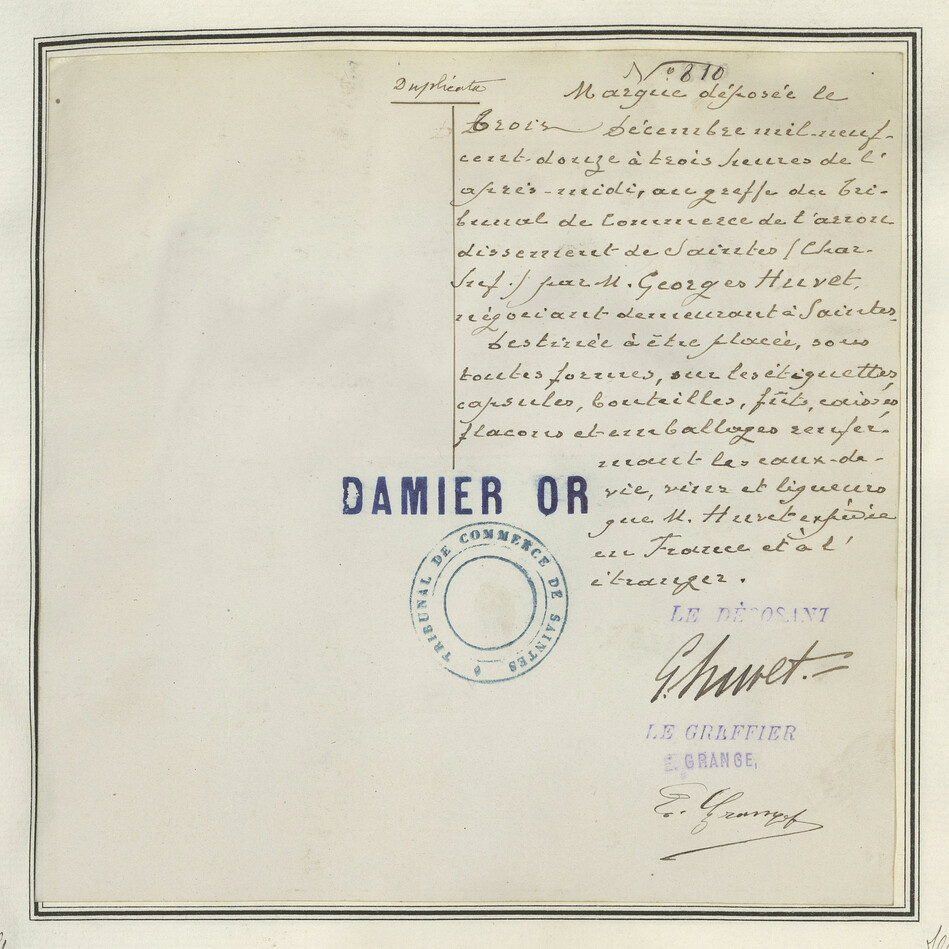 Duplicata
N° 810
Marque déposée le
trois décembre mil-neuf-
cent-donze à trois heures de l'
après-midi, au greffe du Tri-
bunal de Commerce de l'arron
dissement de Saintes (Char-
Inf.) par M. Georges Huvet,
négociant demeurant à Saintes.
Destinée à être placée, sous
toutes formes, sur les étiquettes,
capsules, bouteilles, fûts, caisses
flacons et emballages renfer-
mant les eaux-de-
DAMIER OR
vie, vins et liqueurs
que M. Huvet expédie
en France et à l'
étranger.
TRIBUNAL DE COMMERCE DE SAINTES
LE DÉPOSANT
G. Huvet.
LE GREFFIER
E. GRANGE,
E. Grange